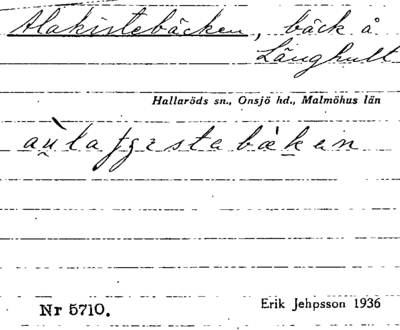 Alakistebäcken, bäck å
Långhult
Hallaröds sn., Onsjö hd., Malmöhus län
Nr 5710.
Erik Jehpsson 1936